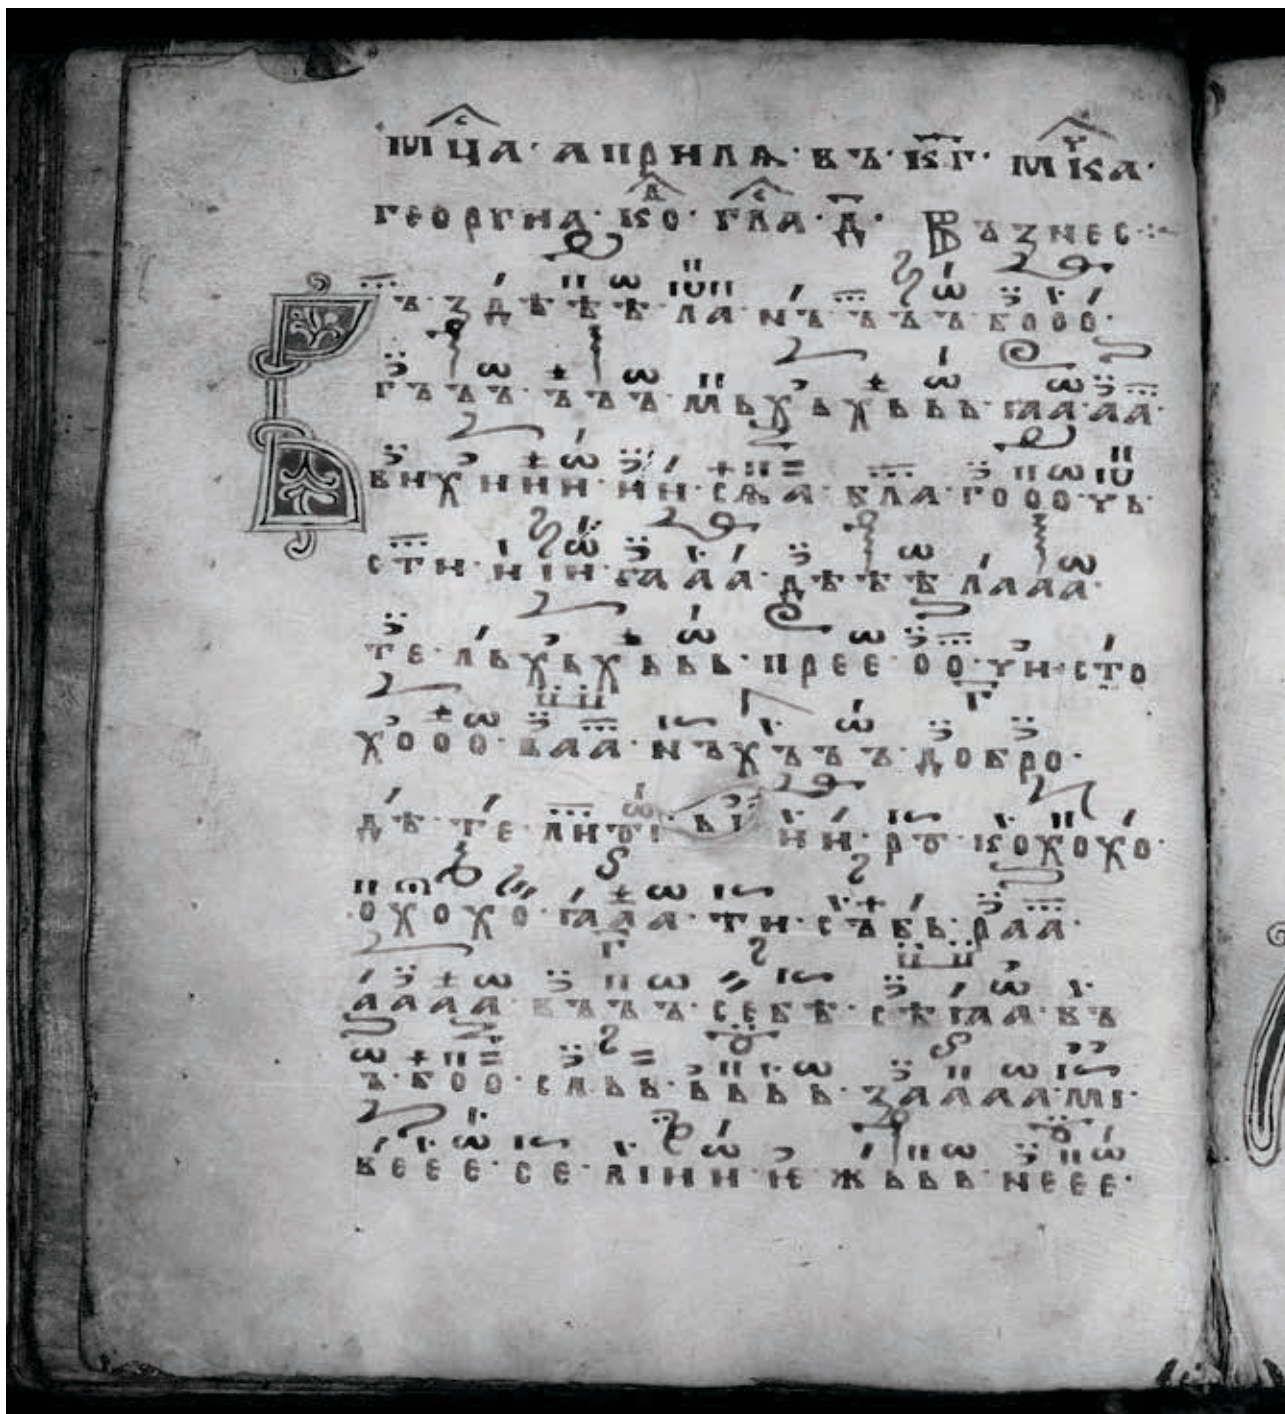 мц҃а · априлѧ · въ · к҃г · мк҃а ·
георгиа · ко · гла · д҃ · Възнес :~
ъ · здѣѣѣ · ла · нъ · ъ · ъ · ъ · бооо ·
гъ · ъ · ъ · ъ · ъ · ъ · мь · хъ · хъ · ь · ь · ꙗа · аа ·
вихиии · ии · сѧа · бла · гооо · чь ·
сти · иіи · ꙗаа · дѣѣѣ · лааа ·
те · льхьхььь · прее · оо · чи · сто
хооо · ваа · нъхъъъ · добро ·
дѣ · те · ли ві ии · ро · кохохо ·
охохо · ꙗаа · ти · съвь · раа ·
аааа · въъъ · себѣ · сѣꙗа · въ
ъ · боо · сльь · ьььь · заааа · мі ·
веее · се · лііи · ѥ · жььь · неее ·